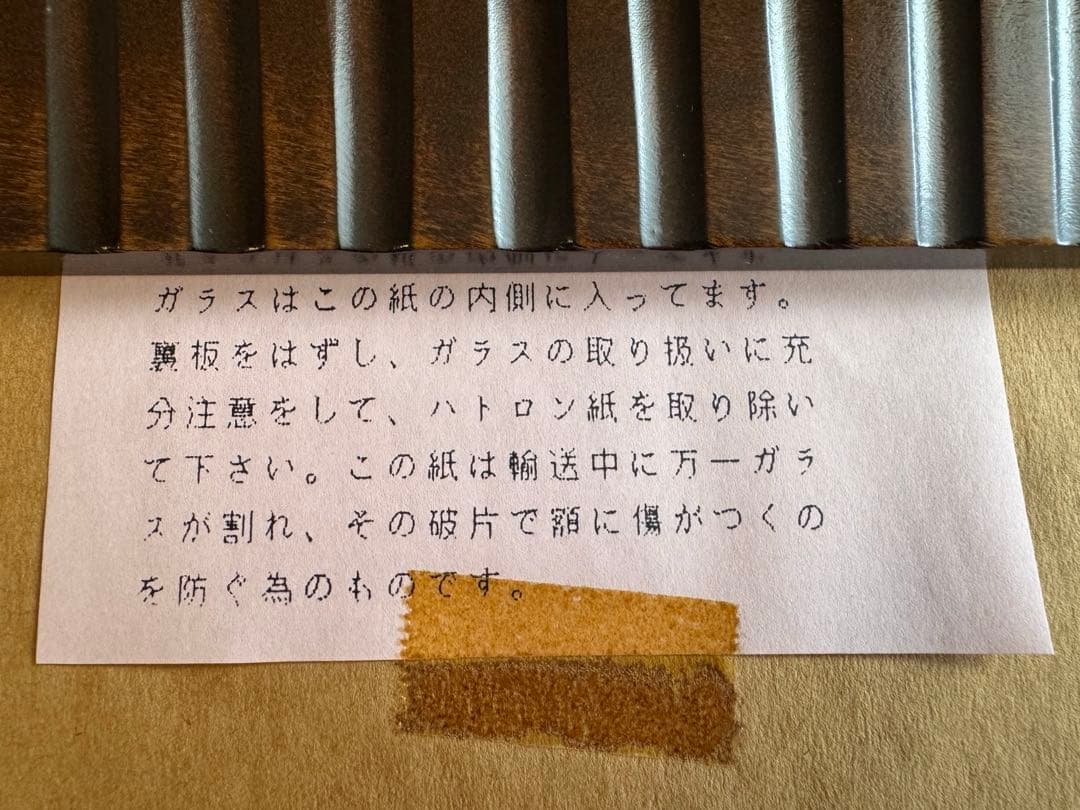 ガラスはこの紙の内側に入ってます。
裏板をはずし、ガラスの取り扱いに充
分注意をして、ハトロン紙を取り除い
て下さい。この紙は輸送中に万一ガラ
スが割れ、その破片で額に傷がつくの
を防ぐ為のものです。